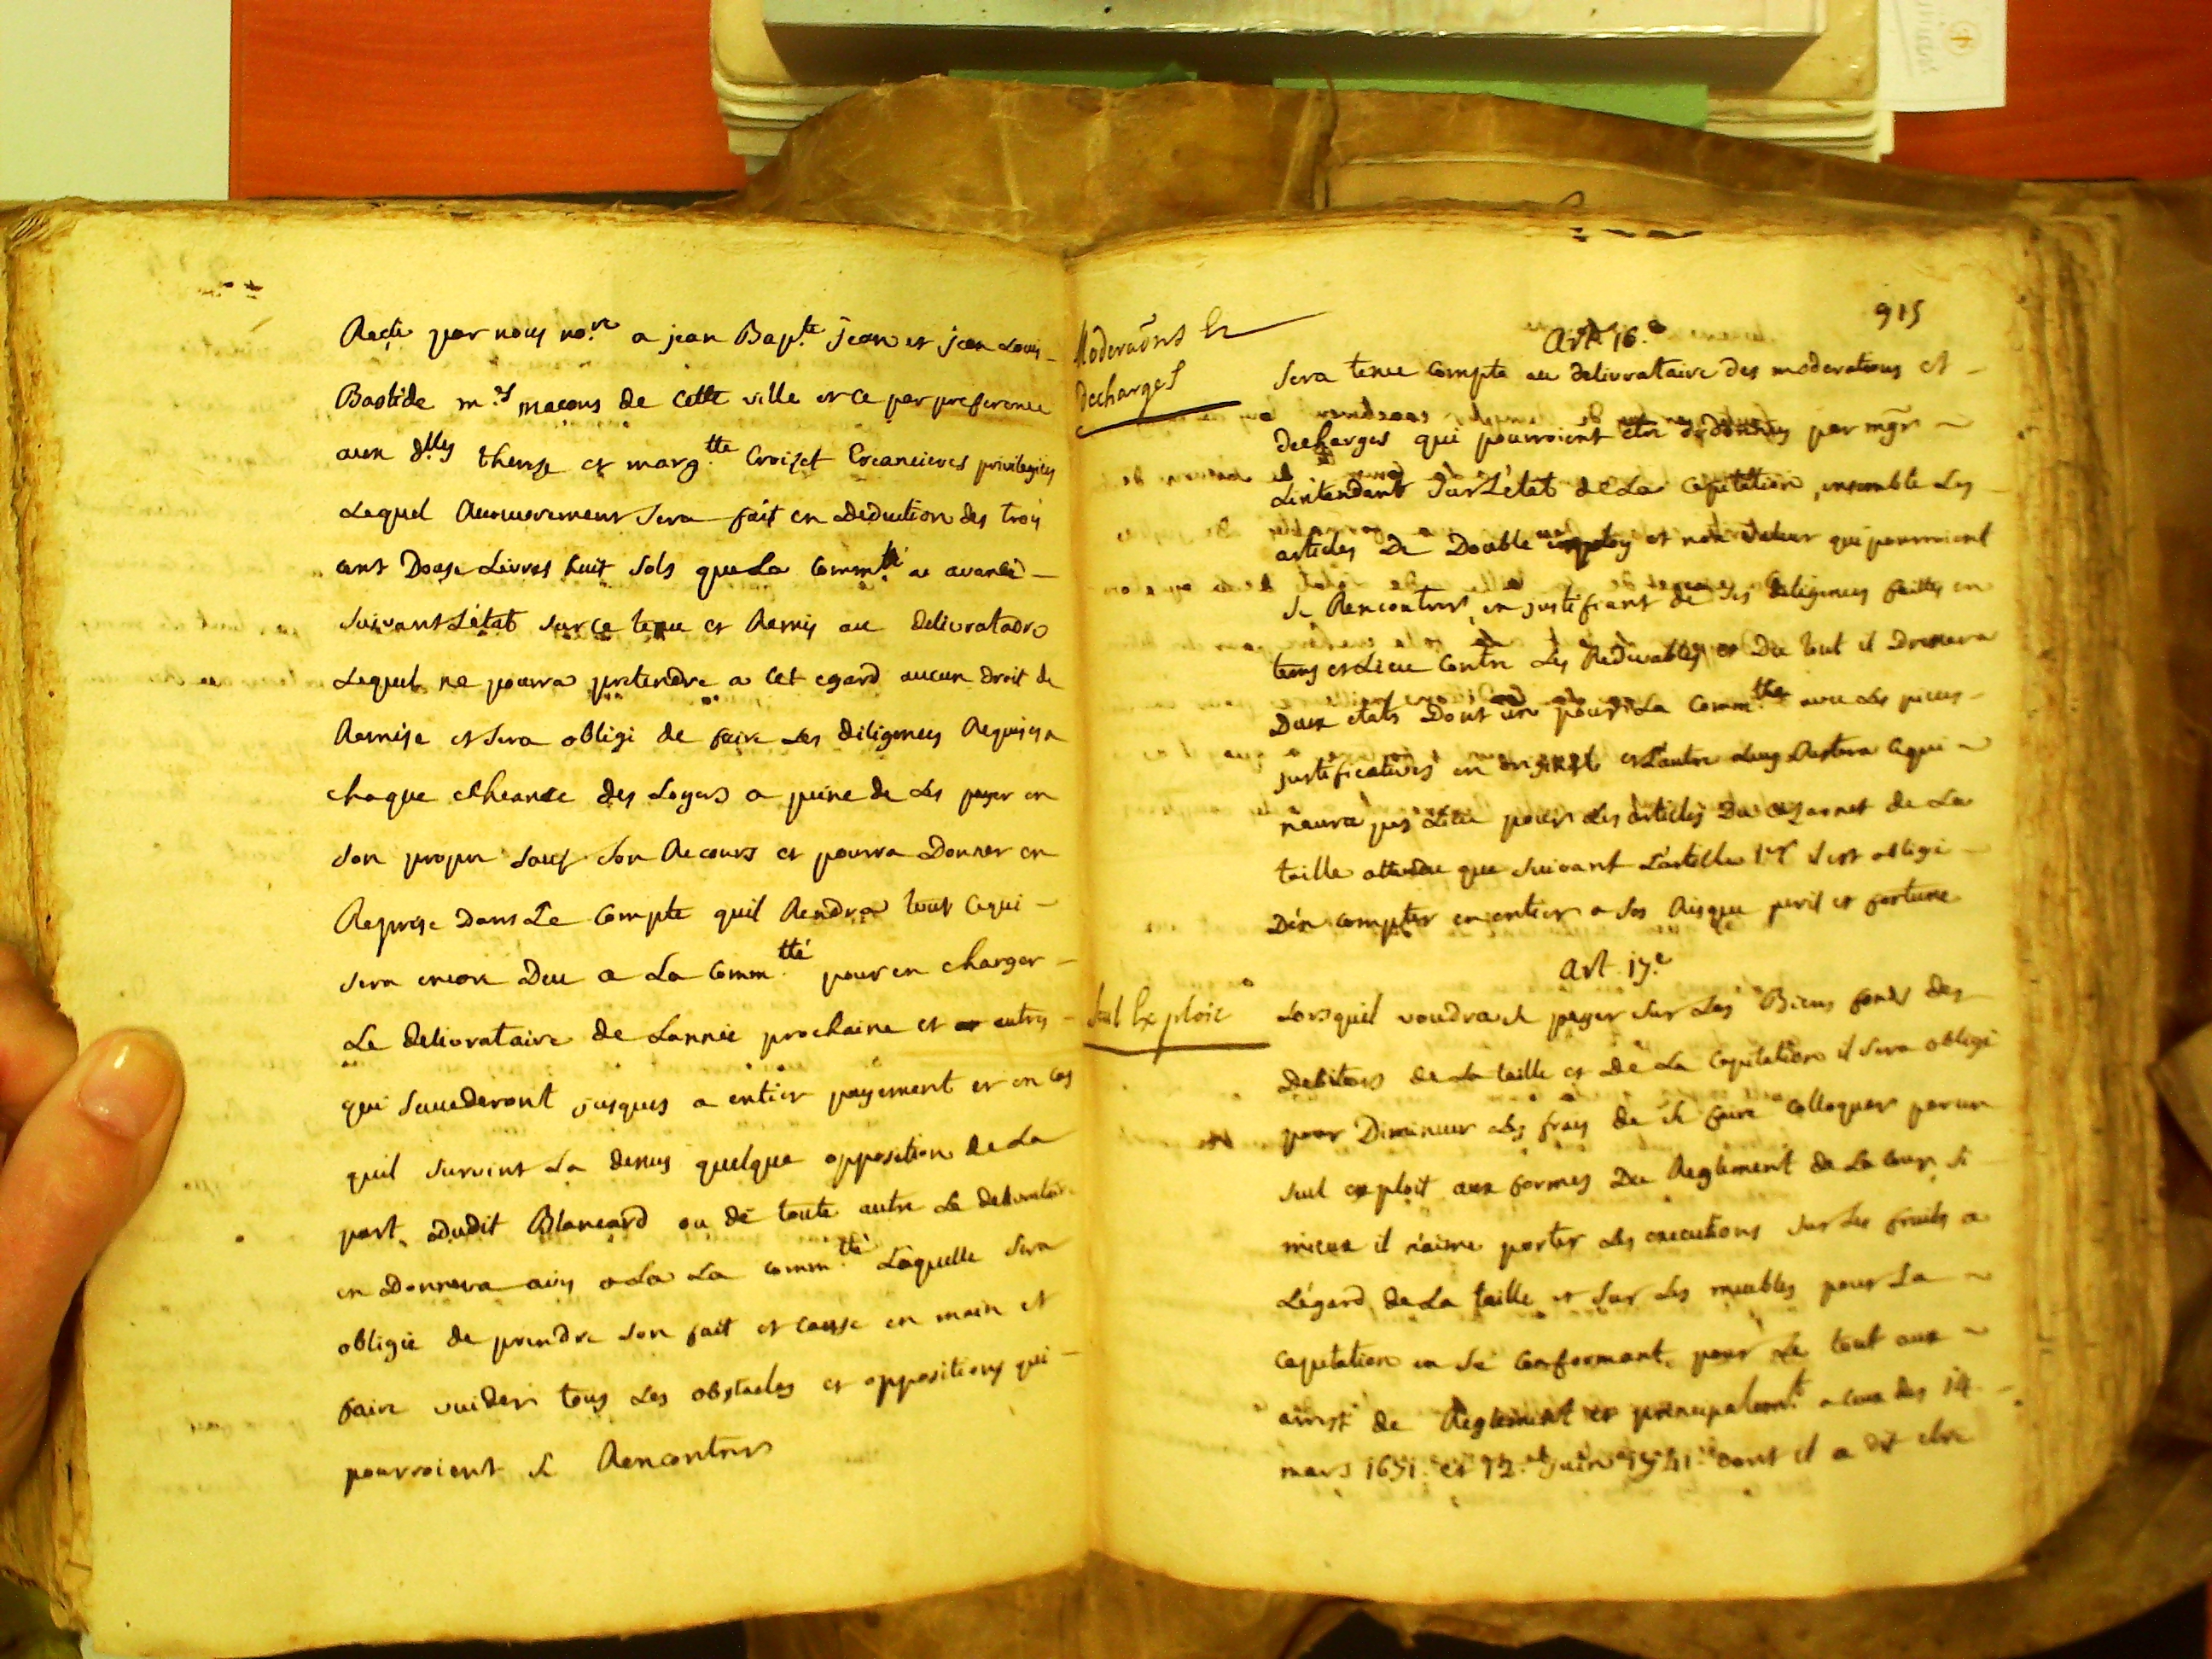 Receu par nous no.re a jean Bap.te jean et jean Louis
Bastide m.es maçons de cette ville et ce par preference
aux d.lles therese et marg.tte Croizet Creancieres privilegiées
Lequel Recouvrement Sera fait en deduction des trois
cent Douze Livres huit Sols que La Comm.té a avancé
Suivant L'état Sur ce tenu et Remis au delivrataire
Lequel ne pourra pretendre a cet egard aucun droit de
Remise et Sera obligé de faire Les diligences Requises a
chaque echeance des Loyers a peine de Les payer en
Son propre Sauf Son Recours et pourra Donner en
Reprise Dans Le Compte quil Rendra tout cequi
Sera encore Deu a La Comm.tté pour en charger
Le delivrataire de Lannée prochaine et autres
qui Succederont jusques a entier payement et en cas
quil Survint La dessus quelque opposition de La
part dudit Blancard ou de toute autre Le delivrataire
en Donnera avis a La La Comm.tté Laquelle Sera
obligée de prendre Son fait et cause en main et
faire vuider tous Les obstacles et oppositions qui
pourroient Se Rencontrer
915
Moderaõns Et
decharges
Art. 16.e
Sera tenu Compte au delivrataire des moderations et
decharges qui pourroient etre données par mgr
Lintendant Sur L'état de La Capitation, ensemble Les
articles De Double employ et non valeur qui pourroient
Se Rencontrer, en justifiant de Ses diligences faittes en
tems et Lieu Contre Les Redevables et Du tout il Dressera
Deux etats Dont un pour La Comm.tté avec Les pieces
justificatives en original et L'autre Luy Restera cequi
naura pas Lieu pour Les articles Du Casernet de La
taille attendu que Suivant L'article 1.er il est obligé
D'en compter en entier a Ses Risque peril et fortune
Art. 17.e
Seul Exploit
Lorsquil voudra Se payer Sur Les Biens fonds des
Debiteurs de La taille et De La Capitation il Sera obligé
pour Diminuer Les frais de Se faire Colloquer par un
Seul exploit aux formes Du Reglement de La Cour, Si
mieux il n'aime porter Les executions Sur Les fruits a
L'égard de La taille et Sur Les meubles pour La
Capitation en Se Conformant pour Le tout aux
arrest de Reglement et principalem.t a ceux des 14
mars 1651. et 12. juin 1741. dont il a dit etre